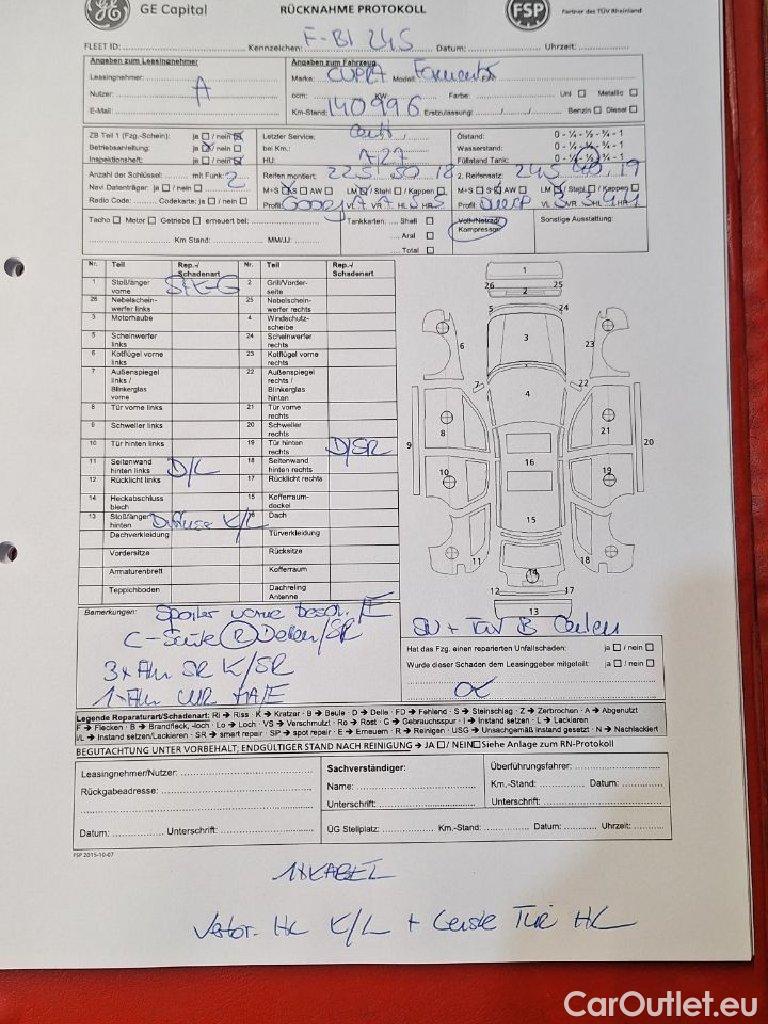 GE GE Capital RÜCKNAHME PROTOKOLL FSP Partner des TÜV Rheinland
FLEET ID: Kennzeichen: F-BI 245 Datum: Uhrzeit:
Angaben zum Leasingnehmer Angaben zum Fahrzeug
Leasingnehmer: A Marke: CUPRA Modell: Formentor
Nutzer: ccm: KW: Farbe: Uni Metallic
E-Mail: Km-Stand: 140996 Erstzulassung: Benzin Diesel
ZB Teil 1 (Fzg.-Schein): ja / nein Letzter Service: Ölstand: 0 - ¼ - ½ - ¾ - 1
Betriebsanleitung: ja / nein bei Km.: Wasserstand: 0 - ¼ - ½ - ¾ - 1
Inspektionsheft: ja / nein HU: Füllstand Tank: 0 - ¼ - ½ - ¾ - 1
Anzahl der Schlüssel: mit Funk: 2 Reifen montiert: 225 50 18 2. Reifensatz: 245 40 19
Navi Datenträger: ja / nein M+S S AW LM / Stahl / Kappen M+S S AW LM / Stahl / Kappen
Radio Code: Codekarte: ja / nein Profil: VL VR HL HR Profil: VL VR HL HR
Tacho Motor Getriebe erneuert bei: Tankkarten: Shell Voll-/Notrad/ Sonstige Ausstattung:
Aral Kompressor
Km Stand: MM/JJ: Total
Nr. Teil Rep.-/ Schadenart Nr. Teil Rep.-/ Schadenart
1 Stoßfänger vorne 2 Grill/Vorderseite
26 Nebelscheinwerfer links 25 Nebelscheinwerfer rechts
3 Motorhaube 4 Windschutzscheibe
5 Scheinwerfer links 24 Scheinwerfer rechts
6 Kotflügel vorne links 23 Kotflügel vorne rechts
7 Außenspiegel links / Blinkerglas vorne 22 Außenspiegel rechts / Blinkerglas hinten
8 Tür vorne links 21 Tür vorne rechts
9 Schweller links 20 Schweller rechts
10 Tür hinten links 19 Tür hinten rechts D/SR
11 Seitenwand hinten links D/L 18 Seitenwand hinten rechts
12 Rücklicht links 17 Rücklicht rechts
14 Heckabschluss blech 15 Kofferraumdeckel
13 Stoßfänger hinten Diffusor K/L 16 Dach
Dachverkleidung Türverkleidung
Vordersitze Rücksitze
Armaturenbrett Kofferraum
Teppichboden Dachreling Antenne
1
26 2 25
5 24
6 3 23
7 22
4
8 21
9 16 20
10 19
15
11 18
14
12 17
13
Bemerkungen: Spoiler vorne besch. /E
C-Säule R Dellen/SR
3x Alu SR K/SR
Hat das Fzg. einen reparierten Unfallschaden: ja / nein
Wurde dieser Schaden dem Leasinggeber mitgeteilt: ja / nein
Legende Reparaturart/Schadenart: RI → Riss · K → Kratzer · B → Beule · D → Delle · FD → Fehlend · S → Steinschlag · Z → Zerbrochen · A → Abgenutzt
F → Flecken · B → Brandfleck, -loch · Lo → Loch · VS → Verschmutzt · Ro → Rost · G → Gebrauchsspur · I → Instand setzen · L → Lackieren
I/L → Instand setzen/Lackieren · SR → smart repair · SP → spot repair · E → Erneuern · R → Reinigen · USG → Unsachgemäß instand gesetzt · N → Nachlackiert
BEGUTACHTUNG UNTER VORBEHALT; ENDGÜLTIGER STAND NACH REINIGUNG → JA / NEIN Siehe Anlage zum RN-Protokoll
Leasingnehmer/Nutzer: Sachverständiger: Überführungsfahrer:
Rückgabeadresse: Name: Km.-Stand: Datum:
Unterschrift: Unterschrift:
Datum: Unterschrift: ÜG Stellplatz: Km.-Stand: Datum: Uhrzeit:
FSP 2015-10-07
1x KABEL
HL K/L + Leiste Tür HL
CarOutlet.eu